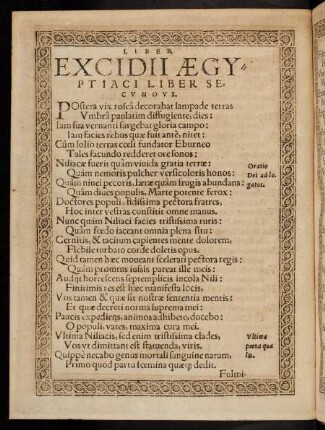 LIBER
EXCIDII ÆGY-
PTIACI LIBER SE-
CVNDVS.
POstera vix roseâ decorabat lampade terras
Vmbrâ paulatim diffugiente, dies:
Iam sua vernanti surgebat gloria campo:
Iam facies rebus quæ fuit antè, nitet:
Cùm solio terras cœli fundator Eburneo
Tales facundo redderet ore sonos:
Niliacæ fuerit quàm viuida gratia terræ:
Oratio
Quàm nemoris pulcher versicoloris honos:
Dei ad le-
Quàm niuei pecoris, lætæ quàm frugis abundans:
gatos.
Quàm diues populis, Marte potente ferox:
Doctores populi, fidissima pectora fratres,
Hoc inter vestras constitit omne manus.
Nunc quàm Niliaci facies tristissima ruris:
Quàm fœdo iaceant omnia plena situ:
Cernitis, & tacitum capientes mente dolorem,
Flebile turbato corde doletis opus.
Quid tamen hæc moueant scelerati pectora regis:
Quàm promtus iussis pareat ille meis:
Audijt horrescens septemplicis incola Nili:
Finitimis res est hæc manifesta locis.
Vos tamen & quæ sit nostræ sententia mentis:
Et quæ decreti norma suprema mei:
Paucis expediens, animos adhibete, docebo:
O populi vates, maxima cura mei.
Vltima Niliacis, sed enim tristissima clades,
Vltima
Vos vt dimittant est statuenda, viris.
pœna qua
Quippè necabo genus mortali sanguine natum,
lis.
Primo quod partu femina quæq; dedit.
Fulmi-